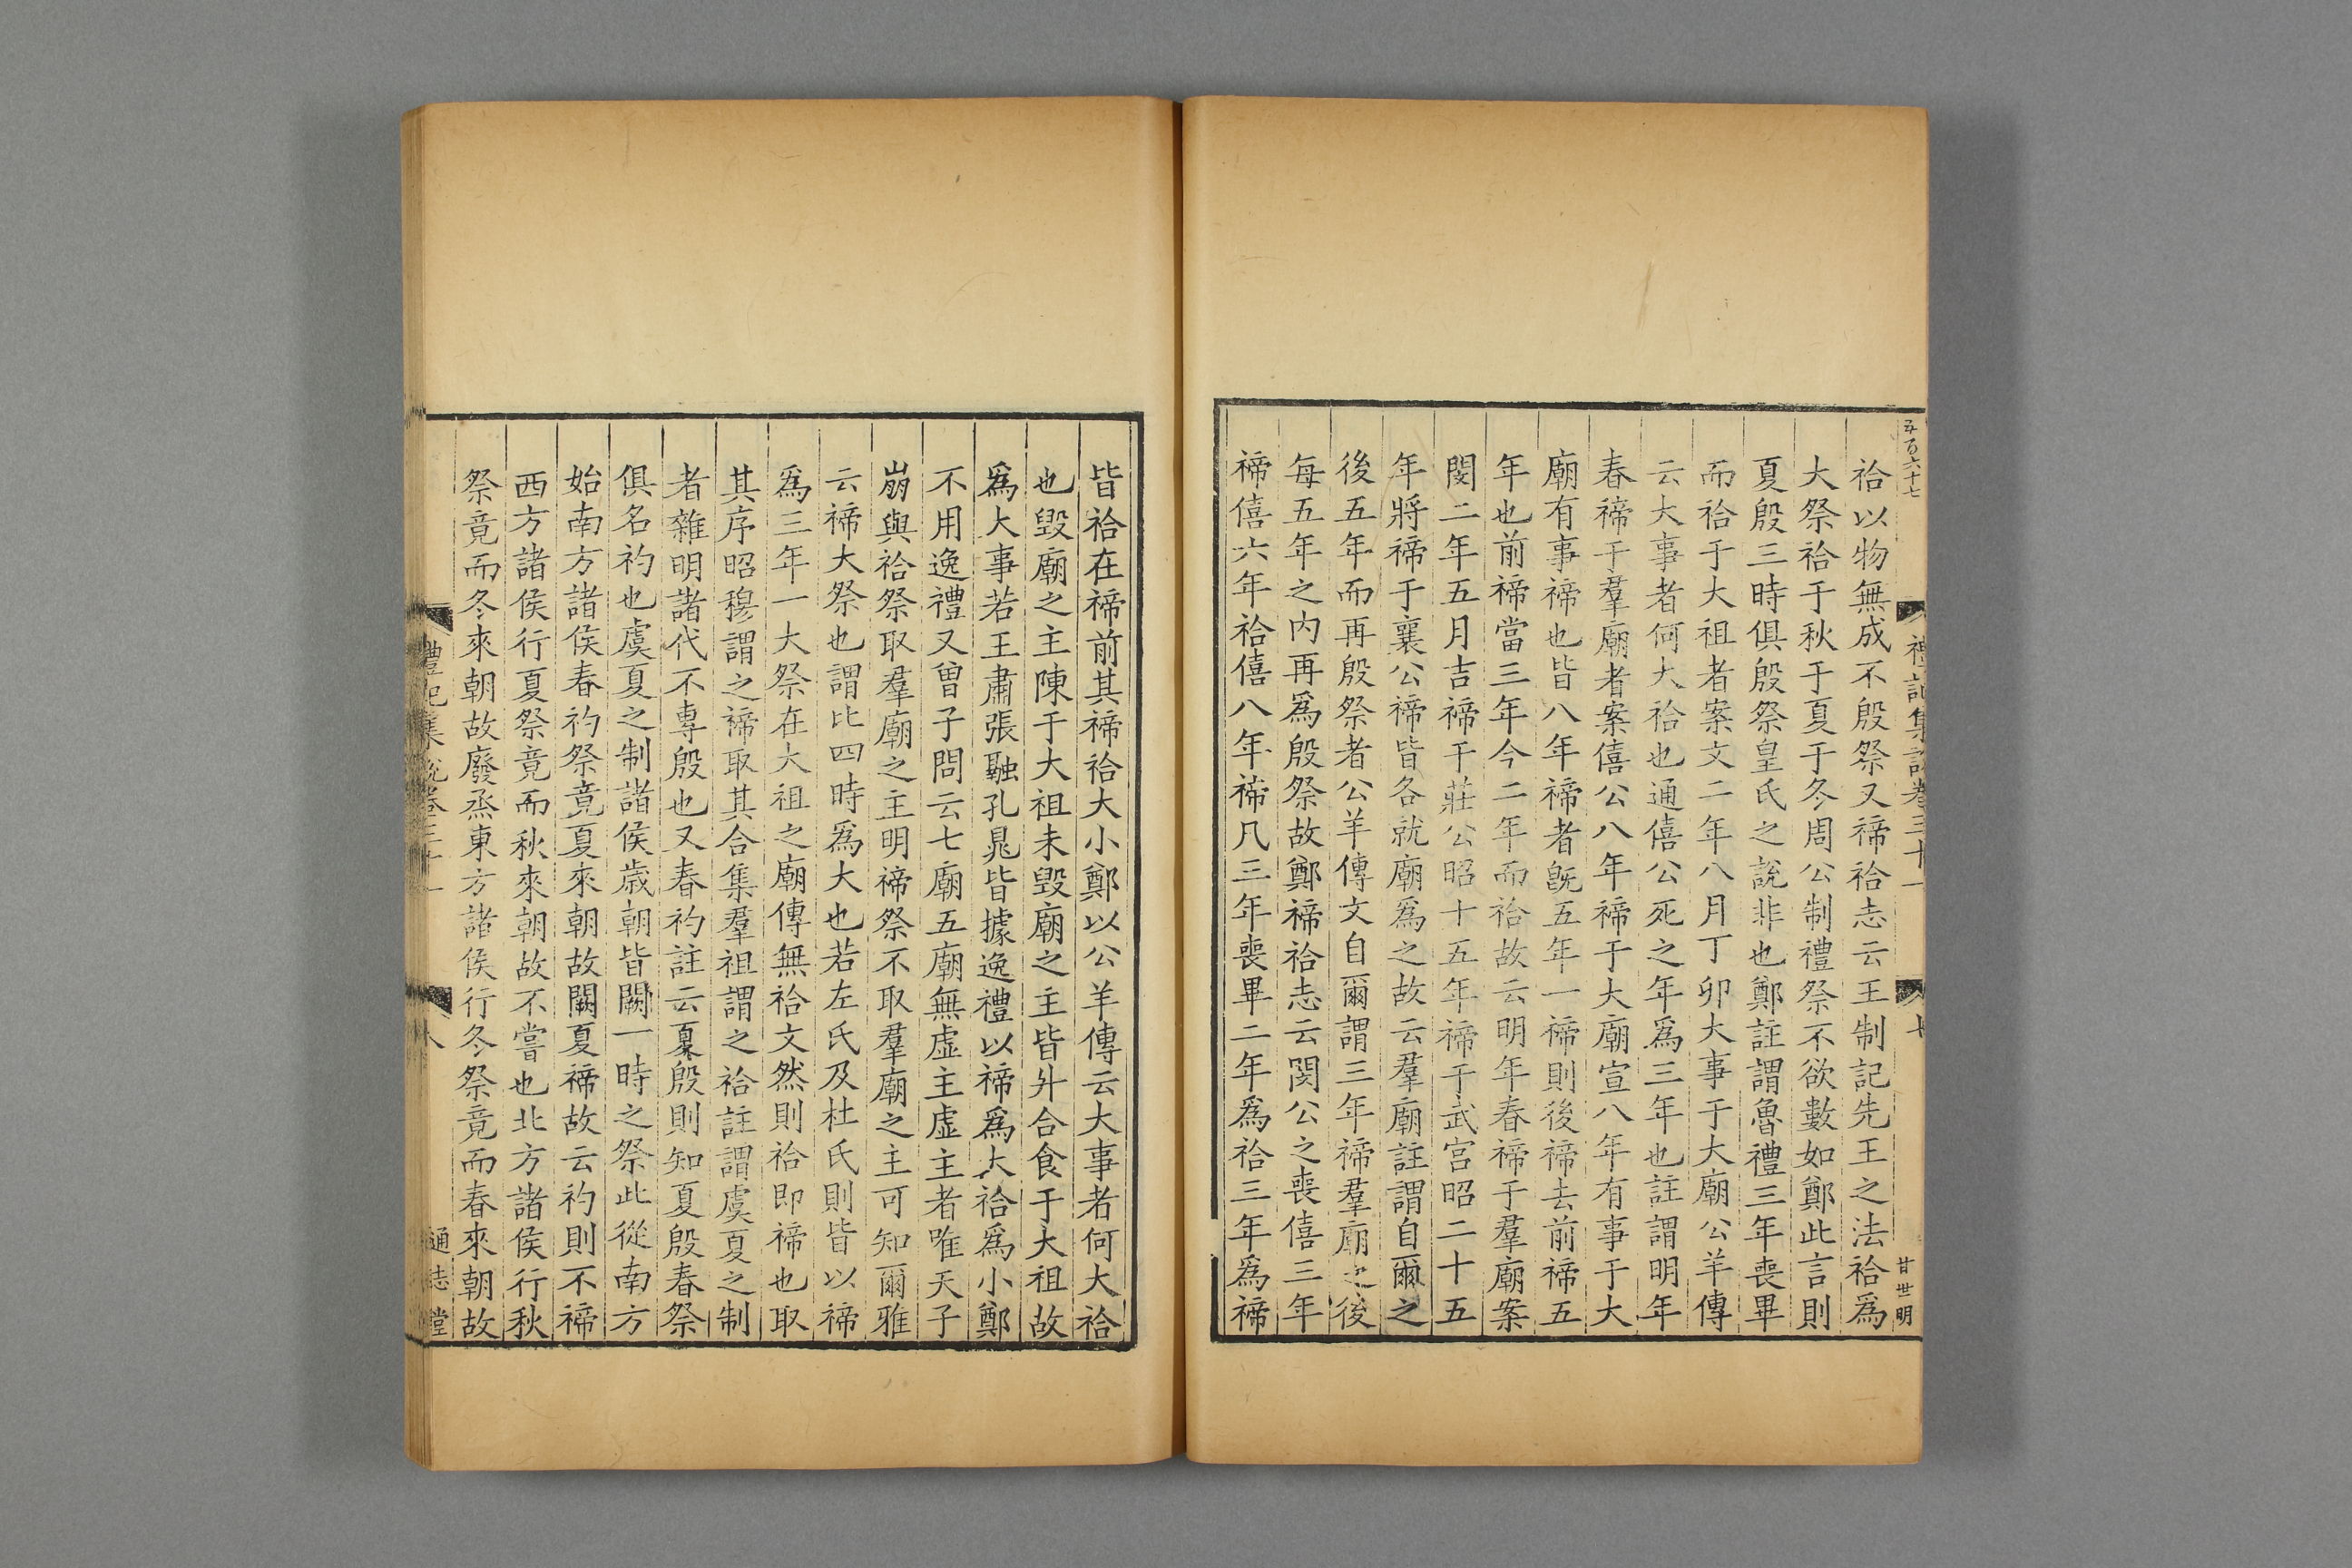 五百六十七
禮記集說卷三十一
七
甘世明
祫以物無成不殷祭又禘祫志云王制記先王之法祫爲
大祭祫于秋于夏于冬周公制禮祭不欲數如鄭此言則
夏殷三時俱殷祭皇氏之說非也鄭註謂魯禮三年喪畢
而祫于大祖者案文二年八月丁卯大事于大廟公羊傳
云大事者何大祫也通僖公死之年爲三年也註謂明年
春禘于羣廟者案僖公八年禘于大廟宣八年有事于大
廟有事禘也皆八年禘者旣五年一禘則後禘去前禘五
年也前禘當三年今二年而祫故云明年春禘于羣廟案
閔二年五月吉禘于莊公昭十五年禘于武宮昭二十五
年將禘于襄公禘皆各就廟爲之故云羣廟註謂自爾之
後五年而再殷祭者公羊傳文自爾謂三年禘羣廟之後
每五年之內再爲殷祭故鄭禘祫志云閔公之喪僖三年
禘僖六年祫僖八年禘凡三年喪畢二年爲祫三年爲禘
皆祫在禘前其禘祫大小鄭以公羊傳云大事者何大祫
也毀廟之主陳于大祖未毀廟之主皆升合食于大祖故
爲大事若王肅張融孔晁皆據逸禮以禘爲大祫爲小鄭
不用逸禮又曾子問云七廟五廟無虛主虛主者唯天子
崩與祫祭取羣廟之主明禘祭不取羣廟之主可知爾雅
云禘大祭也謂比四時爲大也若左氏及杜氏則皆以禘
爲三年一大祭在大祖之廟傳無祫文然則祫即禘也取
其序昭穆謂之禘取其合集羣祖謂之祫註謂虞夏之制
者雜明諸代不專殷也又春礿註云夏殷則知夏殷春祭
俱名礿也虞夏之制諸侯歲朝皆闕一時之祭此從南方
始南方諸侯春礿祭竟夏來朝故闕夏禘故云礿則不禘
西方諸侯行夏祭竟而秋來朝故不嘗也北方諸侯行秋
祭竟而冬來朝故廢烝東方諸侯行冬祭竟而春來朝故
禮記集說卷三十一
八
通志堂